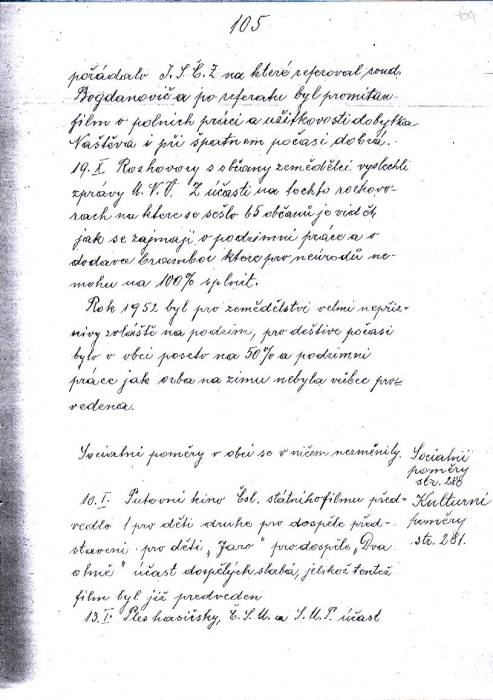 105
109
pořádalo J.S.Č.Z na které referoval soud.
Bogdanovič a po referatu byl promítan
film o polních práci a užitkovosti dobytka
Naštěva i při špatnem počasi dobrá.
19. X Rozhovory s občany zemědělci vyslechli
zprávy M.N.V. Z účasti na techto rozhovo-
rach na ktere se sešlo 65 občanů je vidět,
jak se zajmají o podzimní práce a o
dodavce brambor ktere pro neúrodů ne-
mohu na 100% splnit.
Rok 1952 byl pro zemědělství velmi nepřiz-
nivy zvláště na podzim, pro deštive počasi
bylo v obci poseto na 50% a podzimní
práce jak orba na zimu nebyla vůbec pro-
vedena.
Sociatní poměry v obci se v ničem nezměnily.
Sociatní
poměry
str. 280
10. I. Putovní kino Čsl. státního filmu před-
vedlo 1 pro děti druhe pro dospěle před-
staveni pro děti "Jaro" pro dospěle "Dva
ohně" účast dospělých slabá, jelikož tentež
film byl již předveden
Kulturní
poměry
str. 281.
13. I. Ples hasičsky, Č.S.M. a S.M.P. účast